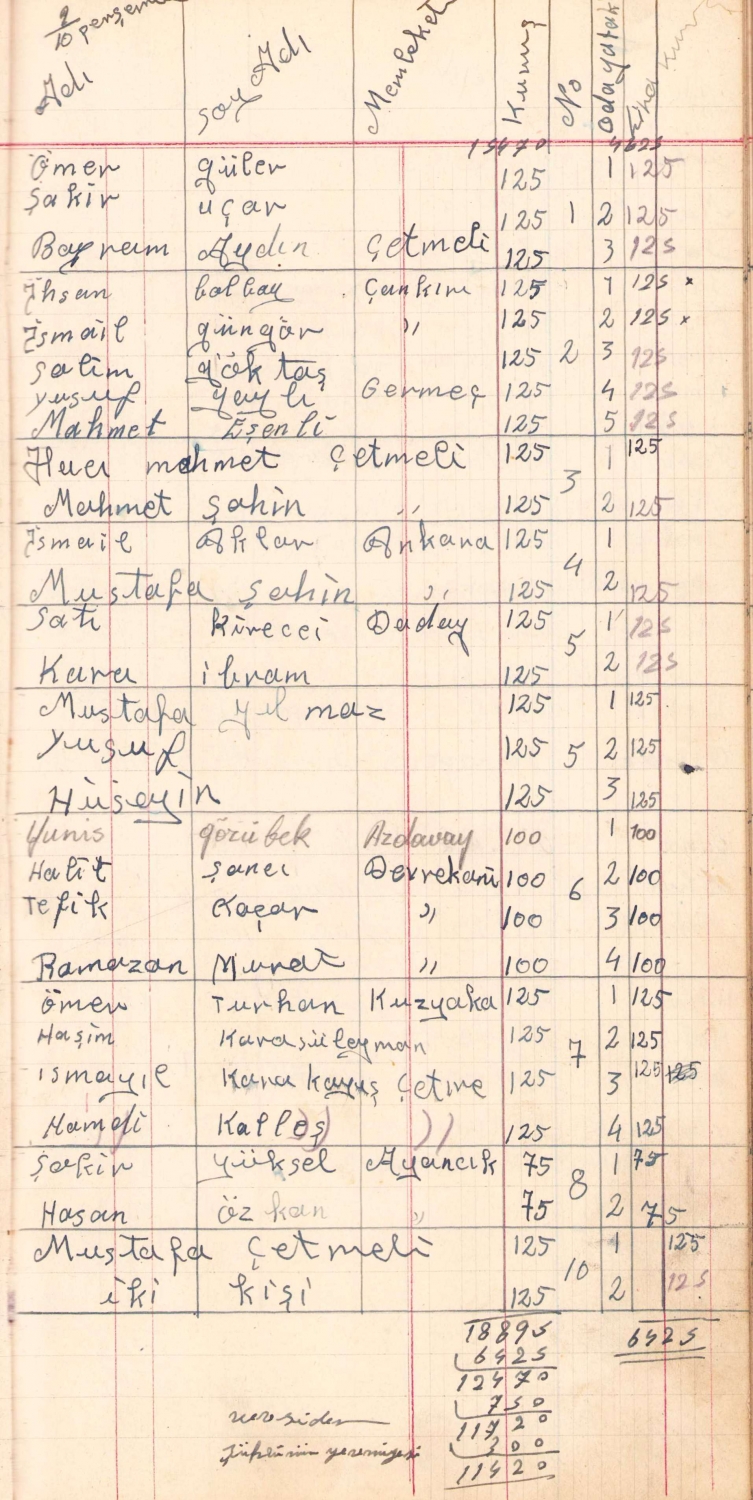 9/10 perşembe
Adı soy Adı Memleket Kuruş No oda yatak
15470 4625
Ömer güler 125 1 125
Şakir uçar 125 1 2 125
Bayram Aydın Çetmeli 125 3 125
İhsan balbay Çankırı 125 1 125 x
İsmail güngör " 125 2 125 x
Salim göktaş 125 2 3 125
yusuf yaylı Germeç 125 4 125
Mahmet Eşenli 125 5 125
Hacı mahmet Çetmeli 125 1 125
3
Mahmet şahin " 125 2 125
İsmail Aklar Ankara 125 1
4
Mustafa şahin " 125 2 125
Satı kireçci Daday 125 1 125
5
Kara ibram 125 2 125
Mustafa yılmaz 125 1 125
yuşuf 125 5 2 125
Hüseyin 125 3 125
Yunis gözübek Azdavay 100 1 100
Halit şancı Devrekani 100 2 100
6
Tefik Kaçar " 100 3 100
Ramazan Murat " 100 4 100
ömer Turhan Kuzyaka 125 1 125
Haşim Karasüleyman 125 2 125
7
ismayıl Kara kayış Çetme 125 3 125 125
Hamdi Kalleş " 125 4 125
Şakir yüksel Ayancık 75 1 75
8
Hasan özkan " 75 2 75
Mustafa Çetmeli 125 1 125
10
iki kişi 125 2 125
18895 6425
6425
12470
750
11720
300
11420